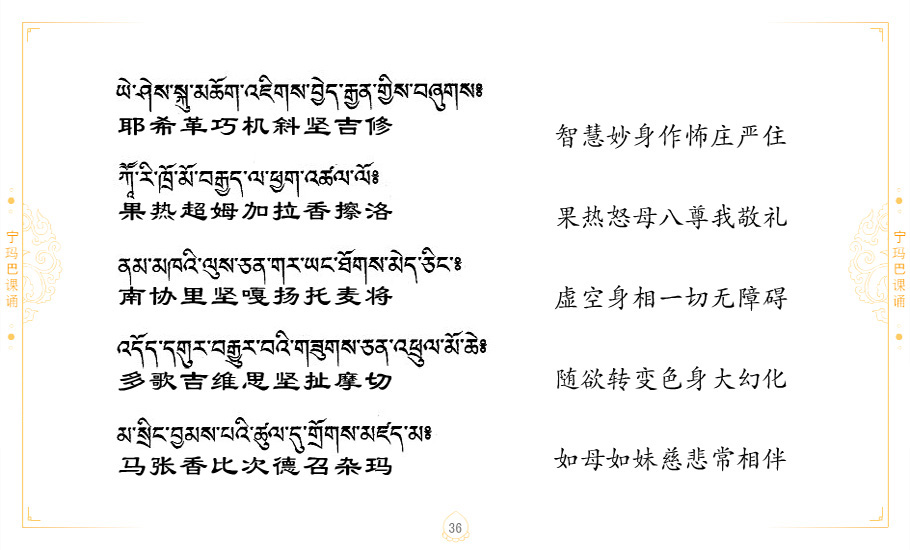 ཡེ་ཤེས་སྐུ་མཆོག་འཇིགས་བྱེད་རྒྱན་གྱིས་བཞུགས༔
耶希革巧机斜坚吉修
智慧妙身作怖庄严住
ཀོཽ་རི་ཁྲོ་མོ་བརྒྱད་ལ་ཕྱག་འཚལ་ལོ༔
果热超姆加拉香擦洛
果热怒母八尊我敬礼
ནམ་མཁའི་ལུས་ཅན་གར་ཡང་ཐོགས་མེད་ཅིང་༔
南协里坚嘎扬托麦将
虚空身相一切无障碍
འདོད་དགུར་བརྒྱུར་བའི་གཟུགས་ཅན་འཕྲུལ་མོ་ཆེ༔
多歌吉维思坚扯摩切
随欲转变色身大幻化
མ་སྲིང་བྱམས་པའི་ཚུལ་དུ་གྲོགས་མཛད་མ༔
马张香比次德召杂玛
如母如妹慈悲常相伴
宁玛巴课诵
宁玛巴课诵
36